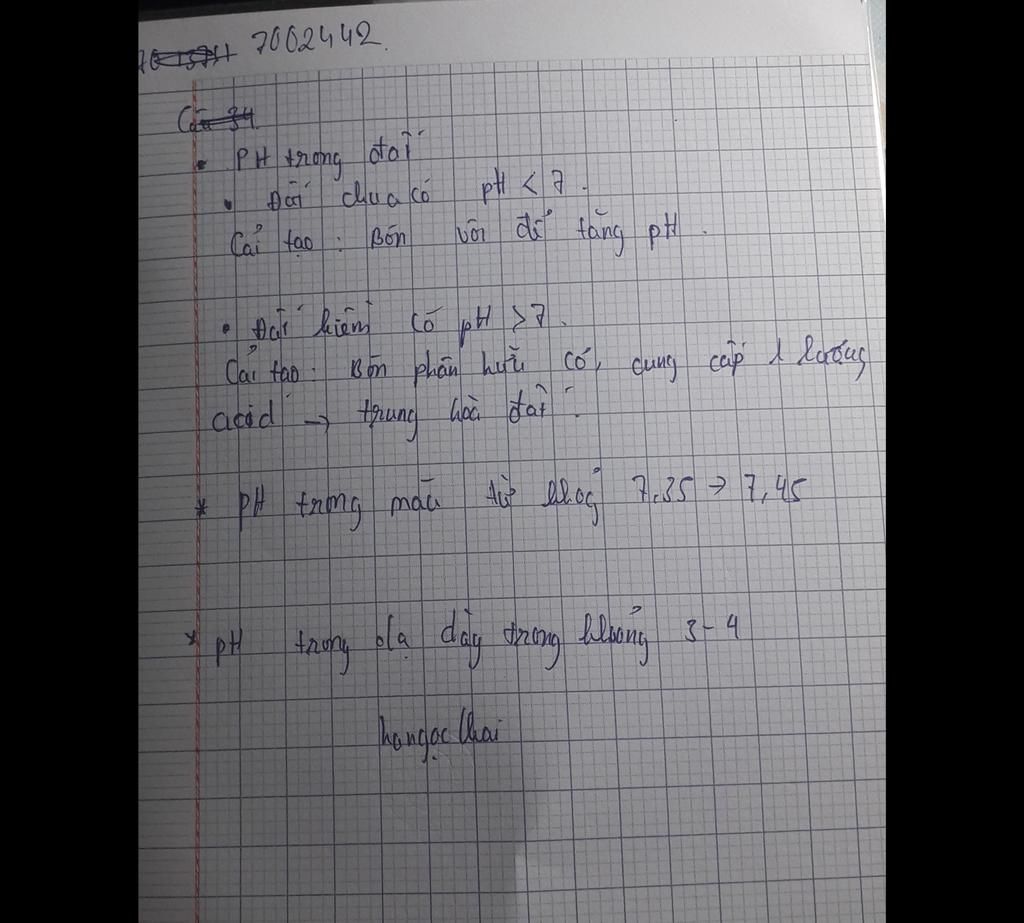 7002442.
Câu 34.
• PH trong đất
• Đất chua có pH < 7.
Cải tạo : Bón vôi để tăng pH.
• Đất kiềm có pH > 7.
Cải tạo : Bón phân hữu cơ, cung cấp 1 lượng
acid → trung hoà đất.
* pH trong máu từ khoảg 7,35 → 7,45
* pH trong dạ dày trong khoảng 3-4
hongoc khai